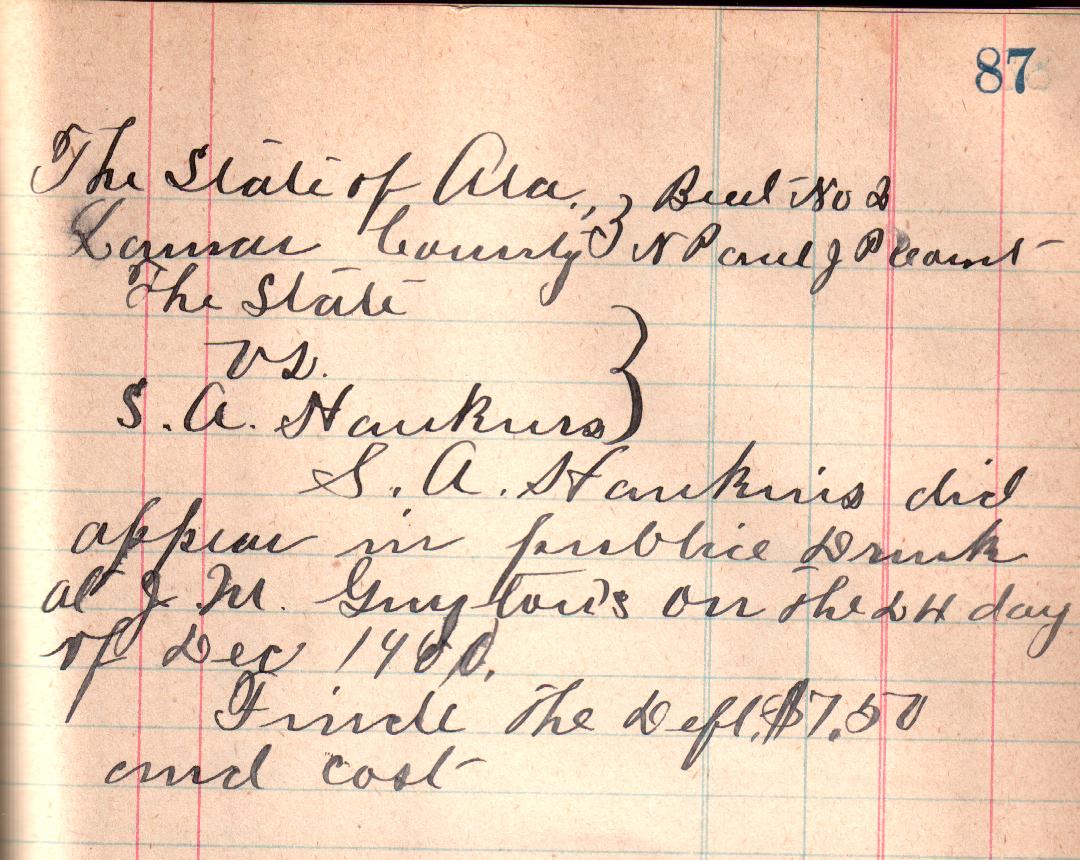 87
The State of Ala., } Beat No 2
Lamar County } N P and J P Court
The State
vs.
S. A. Hankins }
S. A. Hankins did
appear in public Drunk
at J. M. Guyton's on the 24 day
of Dec
Finde the Deft. $7.50
and cost